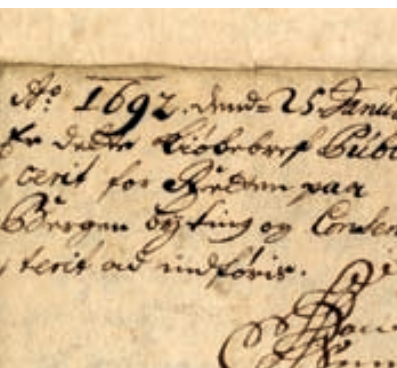 Ao 1692. dend= 25 Janu
Er dette Kiøbebref Publ
cerit for Retten paa
Bergen byting og Consen
terit ad indføris.